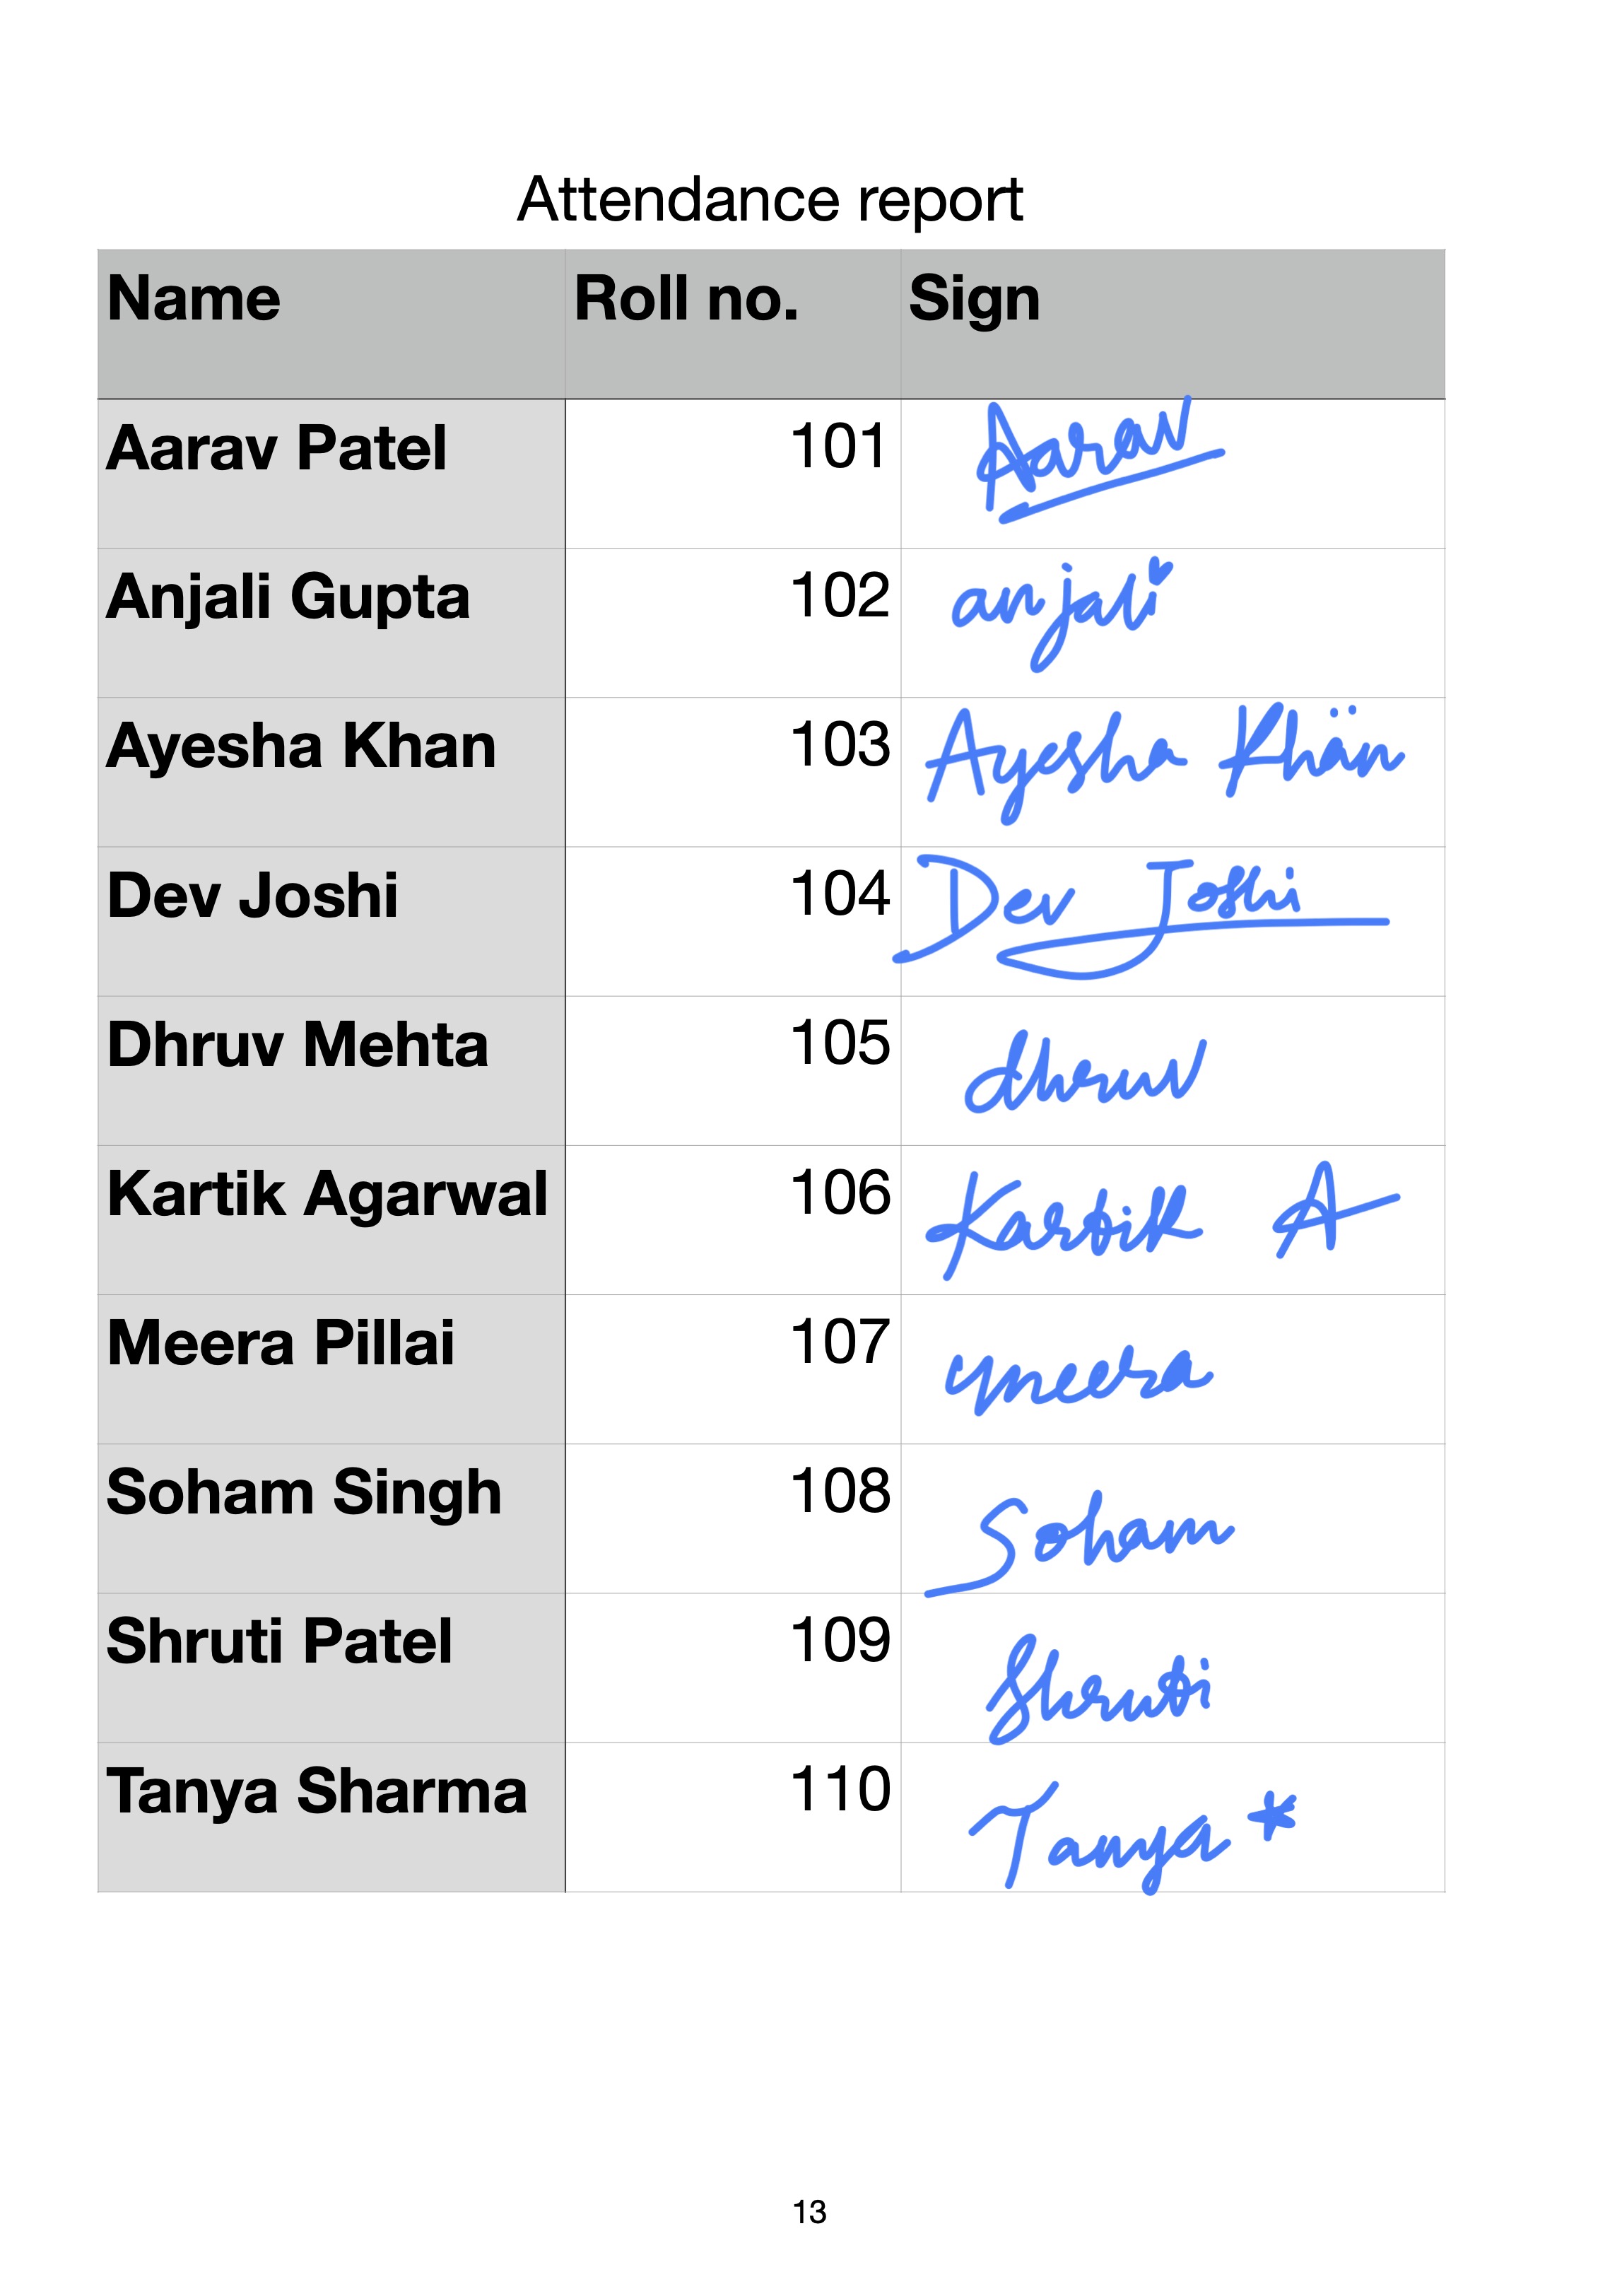 Attendance report
Name Roll no. Sign
Aarav Patel 101 Aarav
Anjali Gupta 102 anjali
Ayesha Khan 103 Ayesha Khän
Dev Joshi 104 Dev Joshi
Dhruv Mehta 105 dhruv
Kartik Agarwal 106 Kartik A
Meera Pillai 107 meera
Soham Singh 108 Soham
Shruti Patel 109 Shruti
Tanya Sharma 110 Tanya *
13